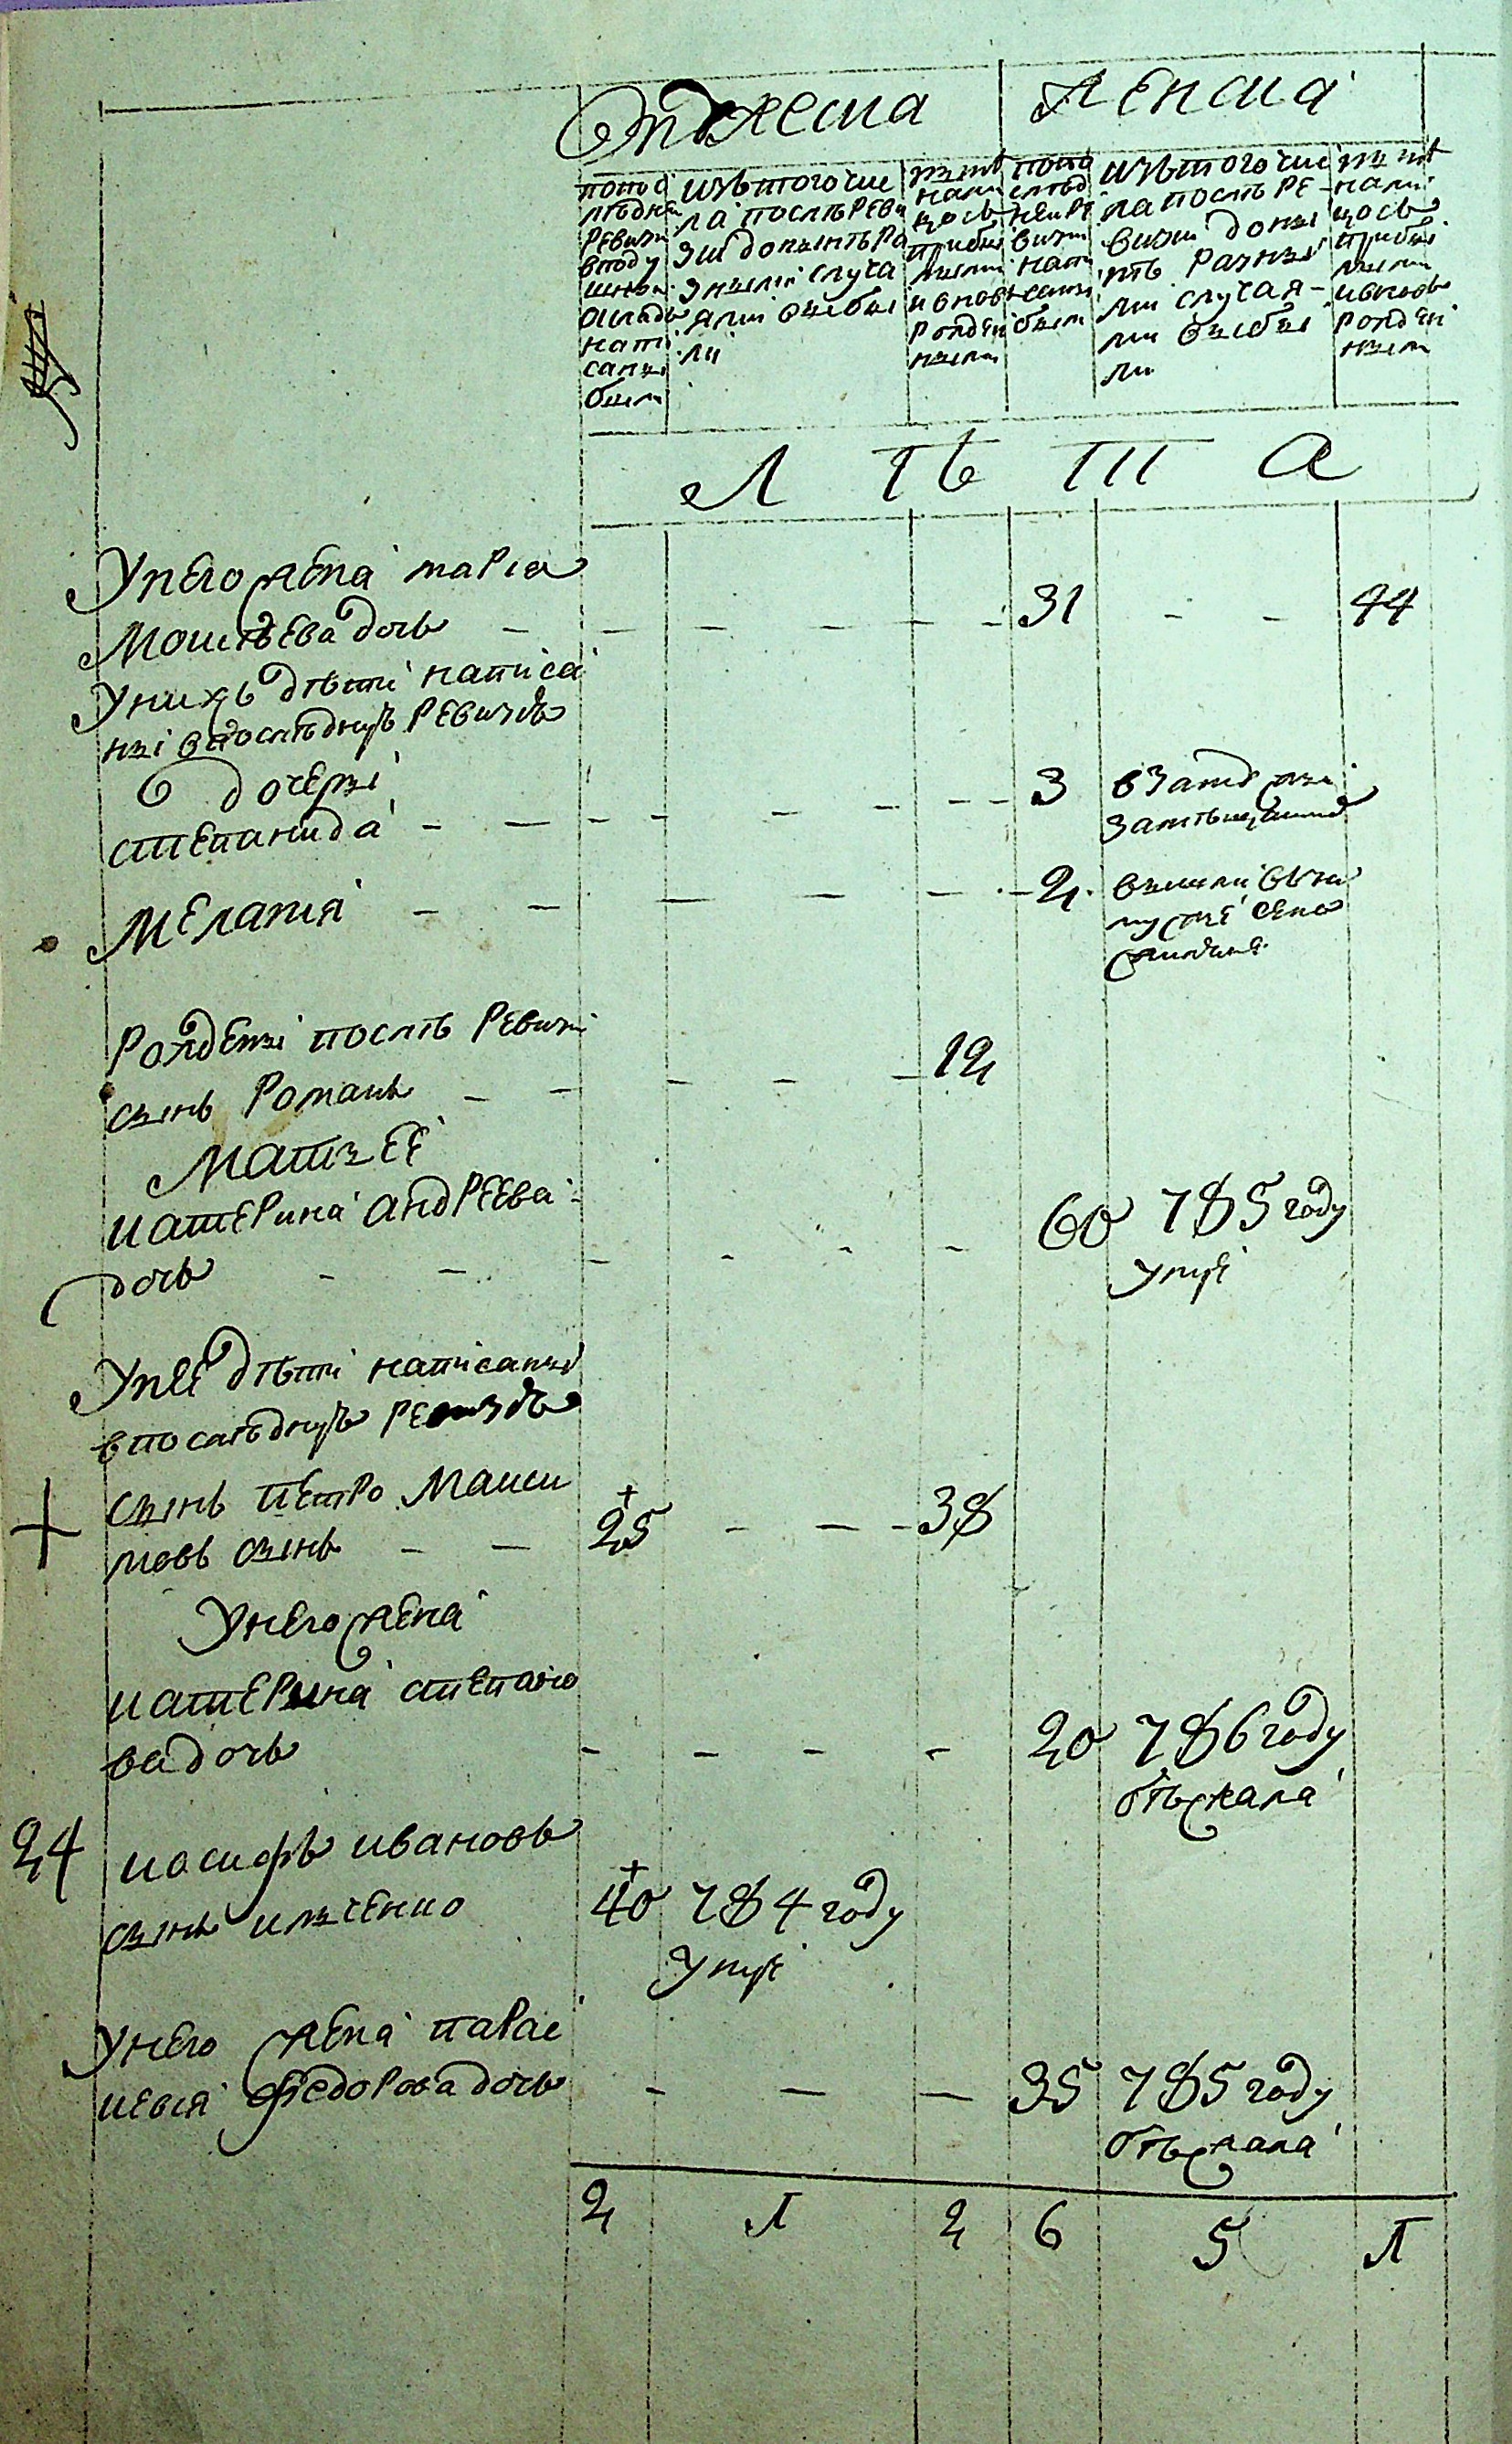 Мужеска Женска
попос
лѣдне
ревизи
вподу
шномъ
акладѣ
напи
саны
были
изътогочис
ла послѣреви
зіи донынѣра
зными случа
ями выбы
ли
нынѣ
нали
цось
прибы
лыми
ивновь
рожден
ными
попо
слѣд
ней ре
визіи
напи
саны
были
изътогочис
ла послѣ ре
визіи доны
нѣ разны
ми случая
ми выбы
ли
нынѣ
нали
цось
прибы
лыми
ивновь
рожден
ными
Л Ѣ Т А
Унего жена марія
Моисѣева дочь - - - - - - 31 - - 44
Унихъ дѣти написа
ны впослѣднуѣ ревизіѣ
дочери
степанида - - - - - - - - 3 взамужи
замѣщанина
Мелания - - - - - - - 2
Рождены послѣ ревизи
сынъ Романъ - - - - - 12
Мать ее
катерина андреева
дочь - - - - - - 60 785 году
умре
Унее дѣти написаны
впослѣднуѣ ревизіѣ
сынъ петро Макси
мовъ сынъ - - 25 - - - 38
Унего жена
катерина степано
ва дочь - - - - 20 786 году
бѣжала
24 иосифъ ивановъ
сынъ ильченко 40 784 году
умре
Унего жена парас
кевия федорова дочь - - - 35 785 году
бѣжала
2 1 2 6 5 1